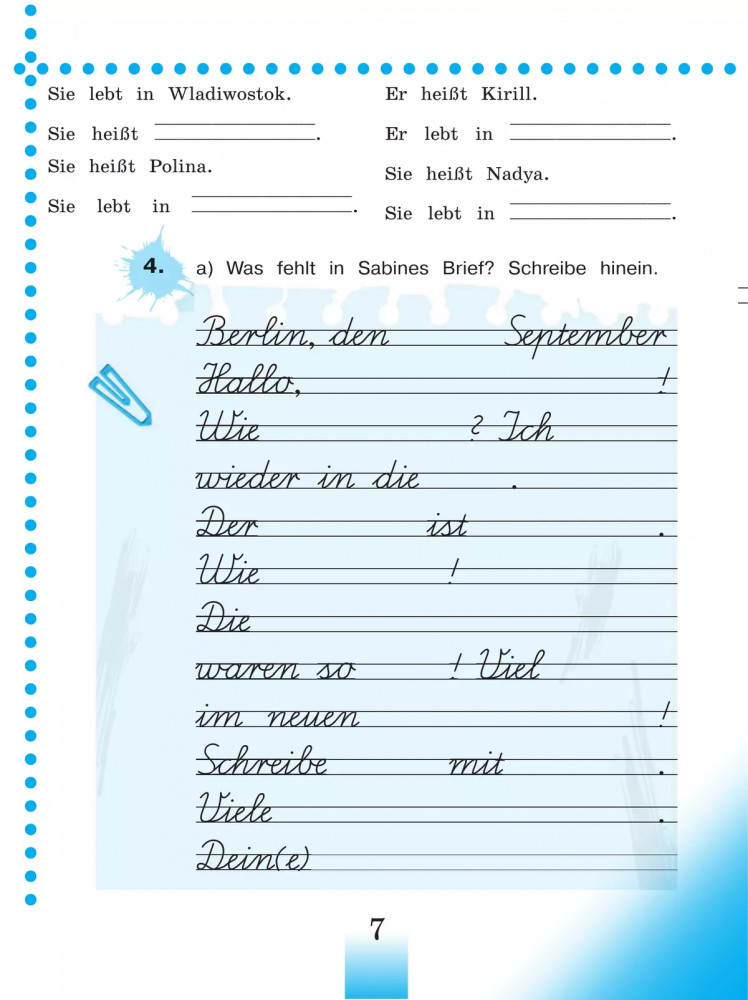 Sie lebt in Wladiwostok.
Sie heißt .
Sie heißt Polina.
Sie lebt in .
Er heißt Kirill.
Er lebt in .
Sie heißt Nadya.
Sie lebt in .
4. a) Was fehlt in Sabines Brief? Schreibe hinein.
Berlin, den September
Hallo, !
Wie ? Ich
wieder in die .
Der ist .
Wie !
Die
waren so ! Viel
im neuen !
Schreibe mit .
Viele .
Dein(e)
7